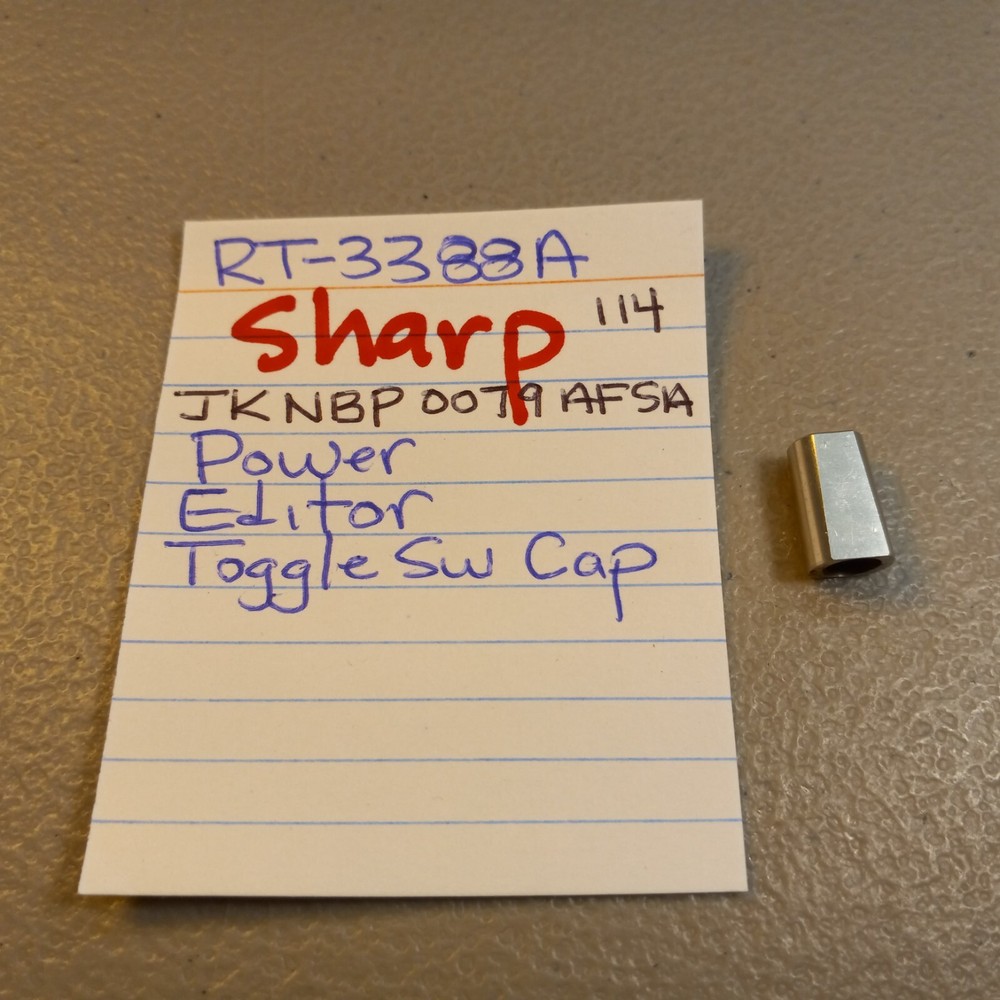 RT-3388A
Sharp 114
JKNBP0079AFSA
Power
Editor
Toggle Sw Cap